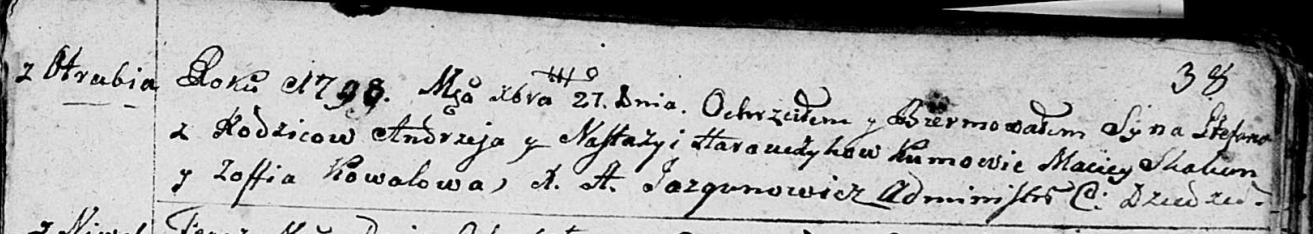 38
z Otrubia Roku 1798. Msca Xbra 27. Dnia. Ochrzciłem y Biermowałem Syna Stefana
z Rodzicow Andrzeja y Nastazyi Kumowie Maciey Skakun
y Zoffia Kowalowa, X. A. Jazgunowicz Administr C: